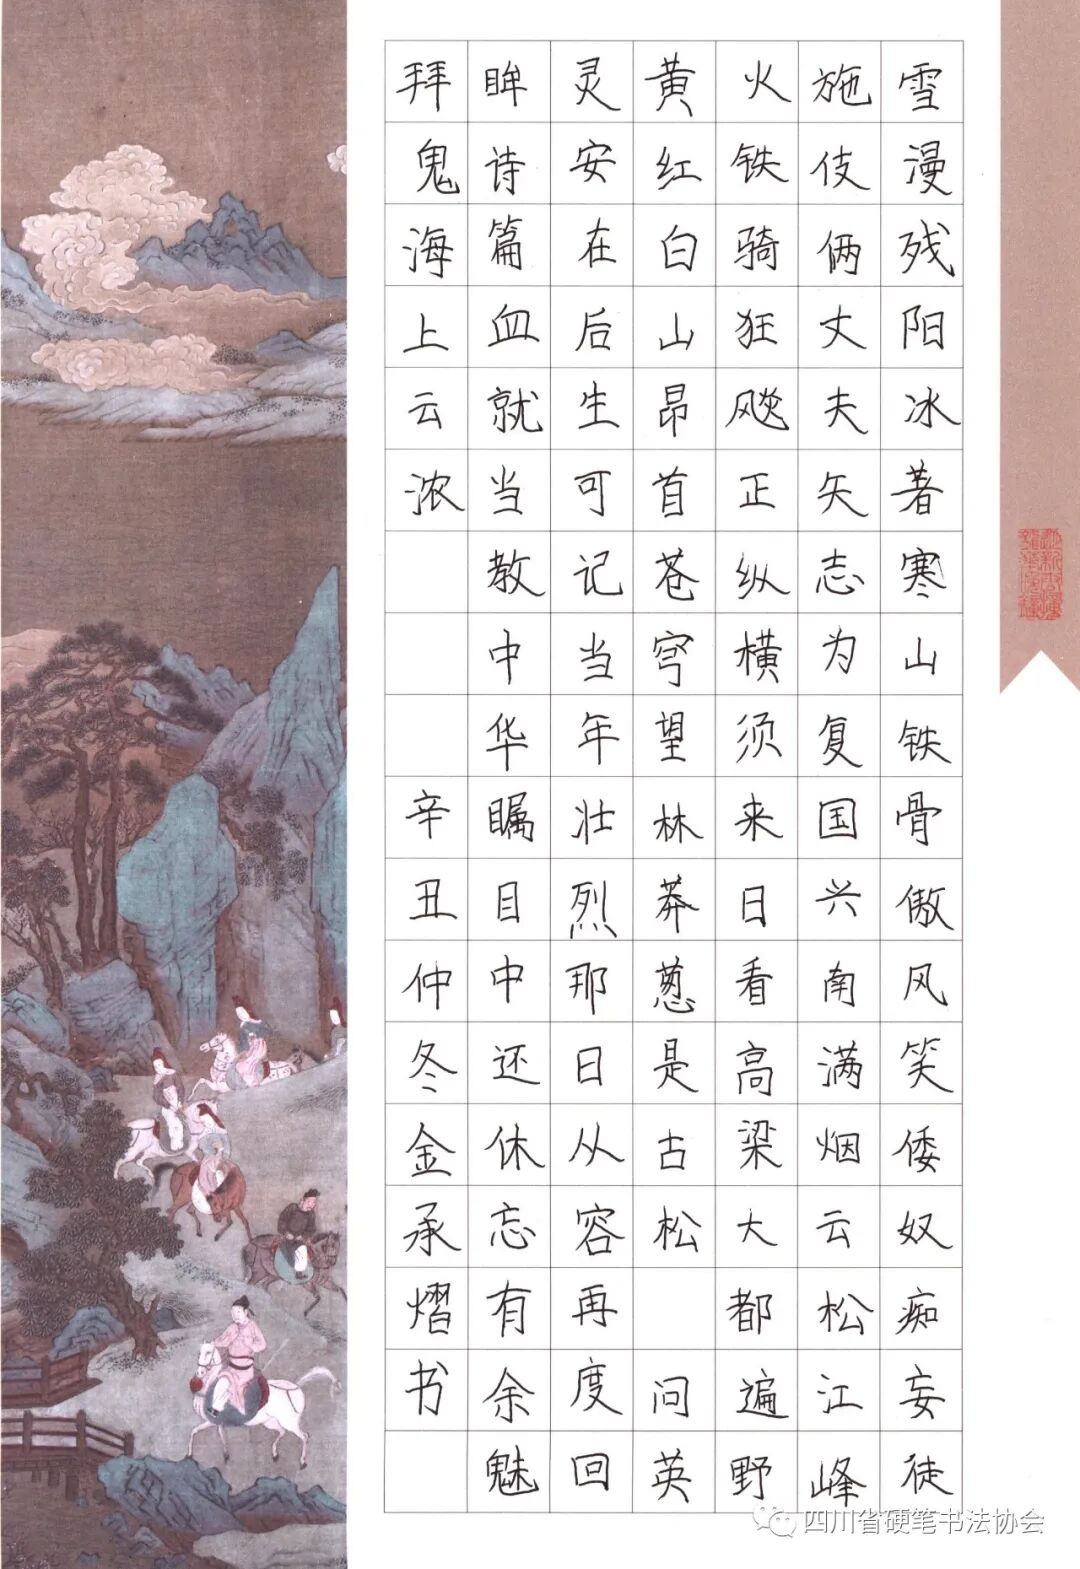 雪漫残阳冰著寒山铁骨傲风笑倭奴痴妄徒
施伎俩丈夫矢志为复国兴南满烟云松江峰
火铁骑狂飚正纵横须来日看高梁大都遍野
黄红白山昂首苍穹望林莽葱是古松 问英
灵安在后生可记当年壮烈那日从容再度回
眸诗篇血就当教中华瞩目中还休忘有余魅
拜鬼海上云浓 辛丑仲冬金承熠书
四川省硬笔书法协会